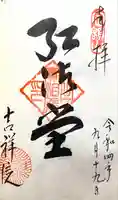 奉拝
弘法堂
令和四年
九月十九日
吉祥院